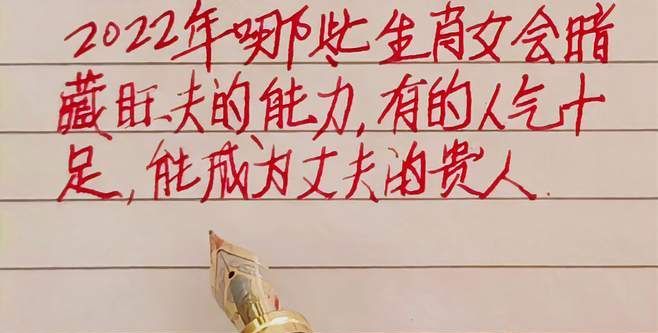 2022年哪些生肖女会暗
藏旺夫的能力,有的人气十
足,能成为丈夫的贵人.